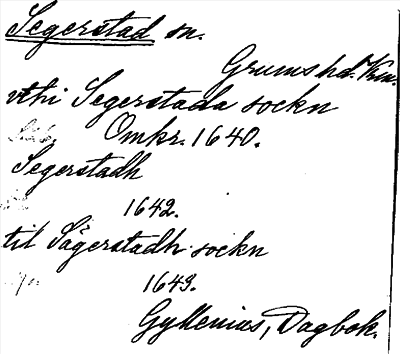 Segerstad sn.
Grums hd. Vrm.
vthi Segerstada sockn
Omkr. 1640.
Segerstadh
1642.
til Sägerstadh sockn
1643.
Gyllenius, Dagbok.